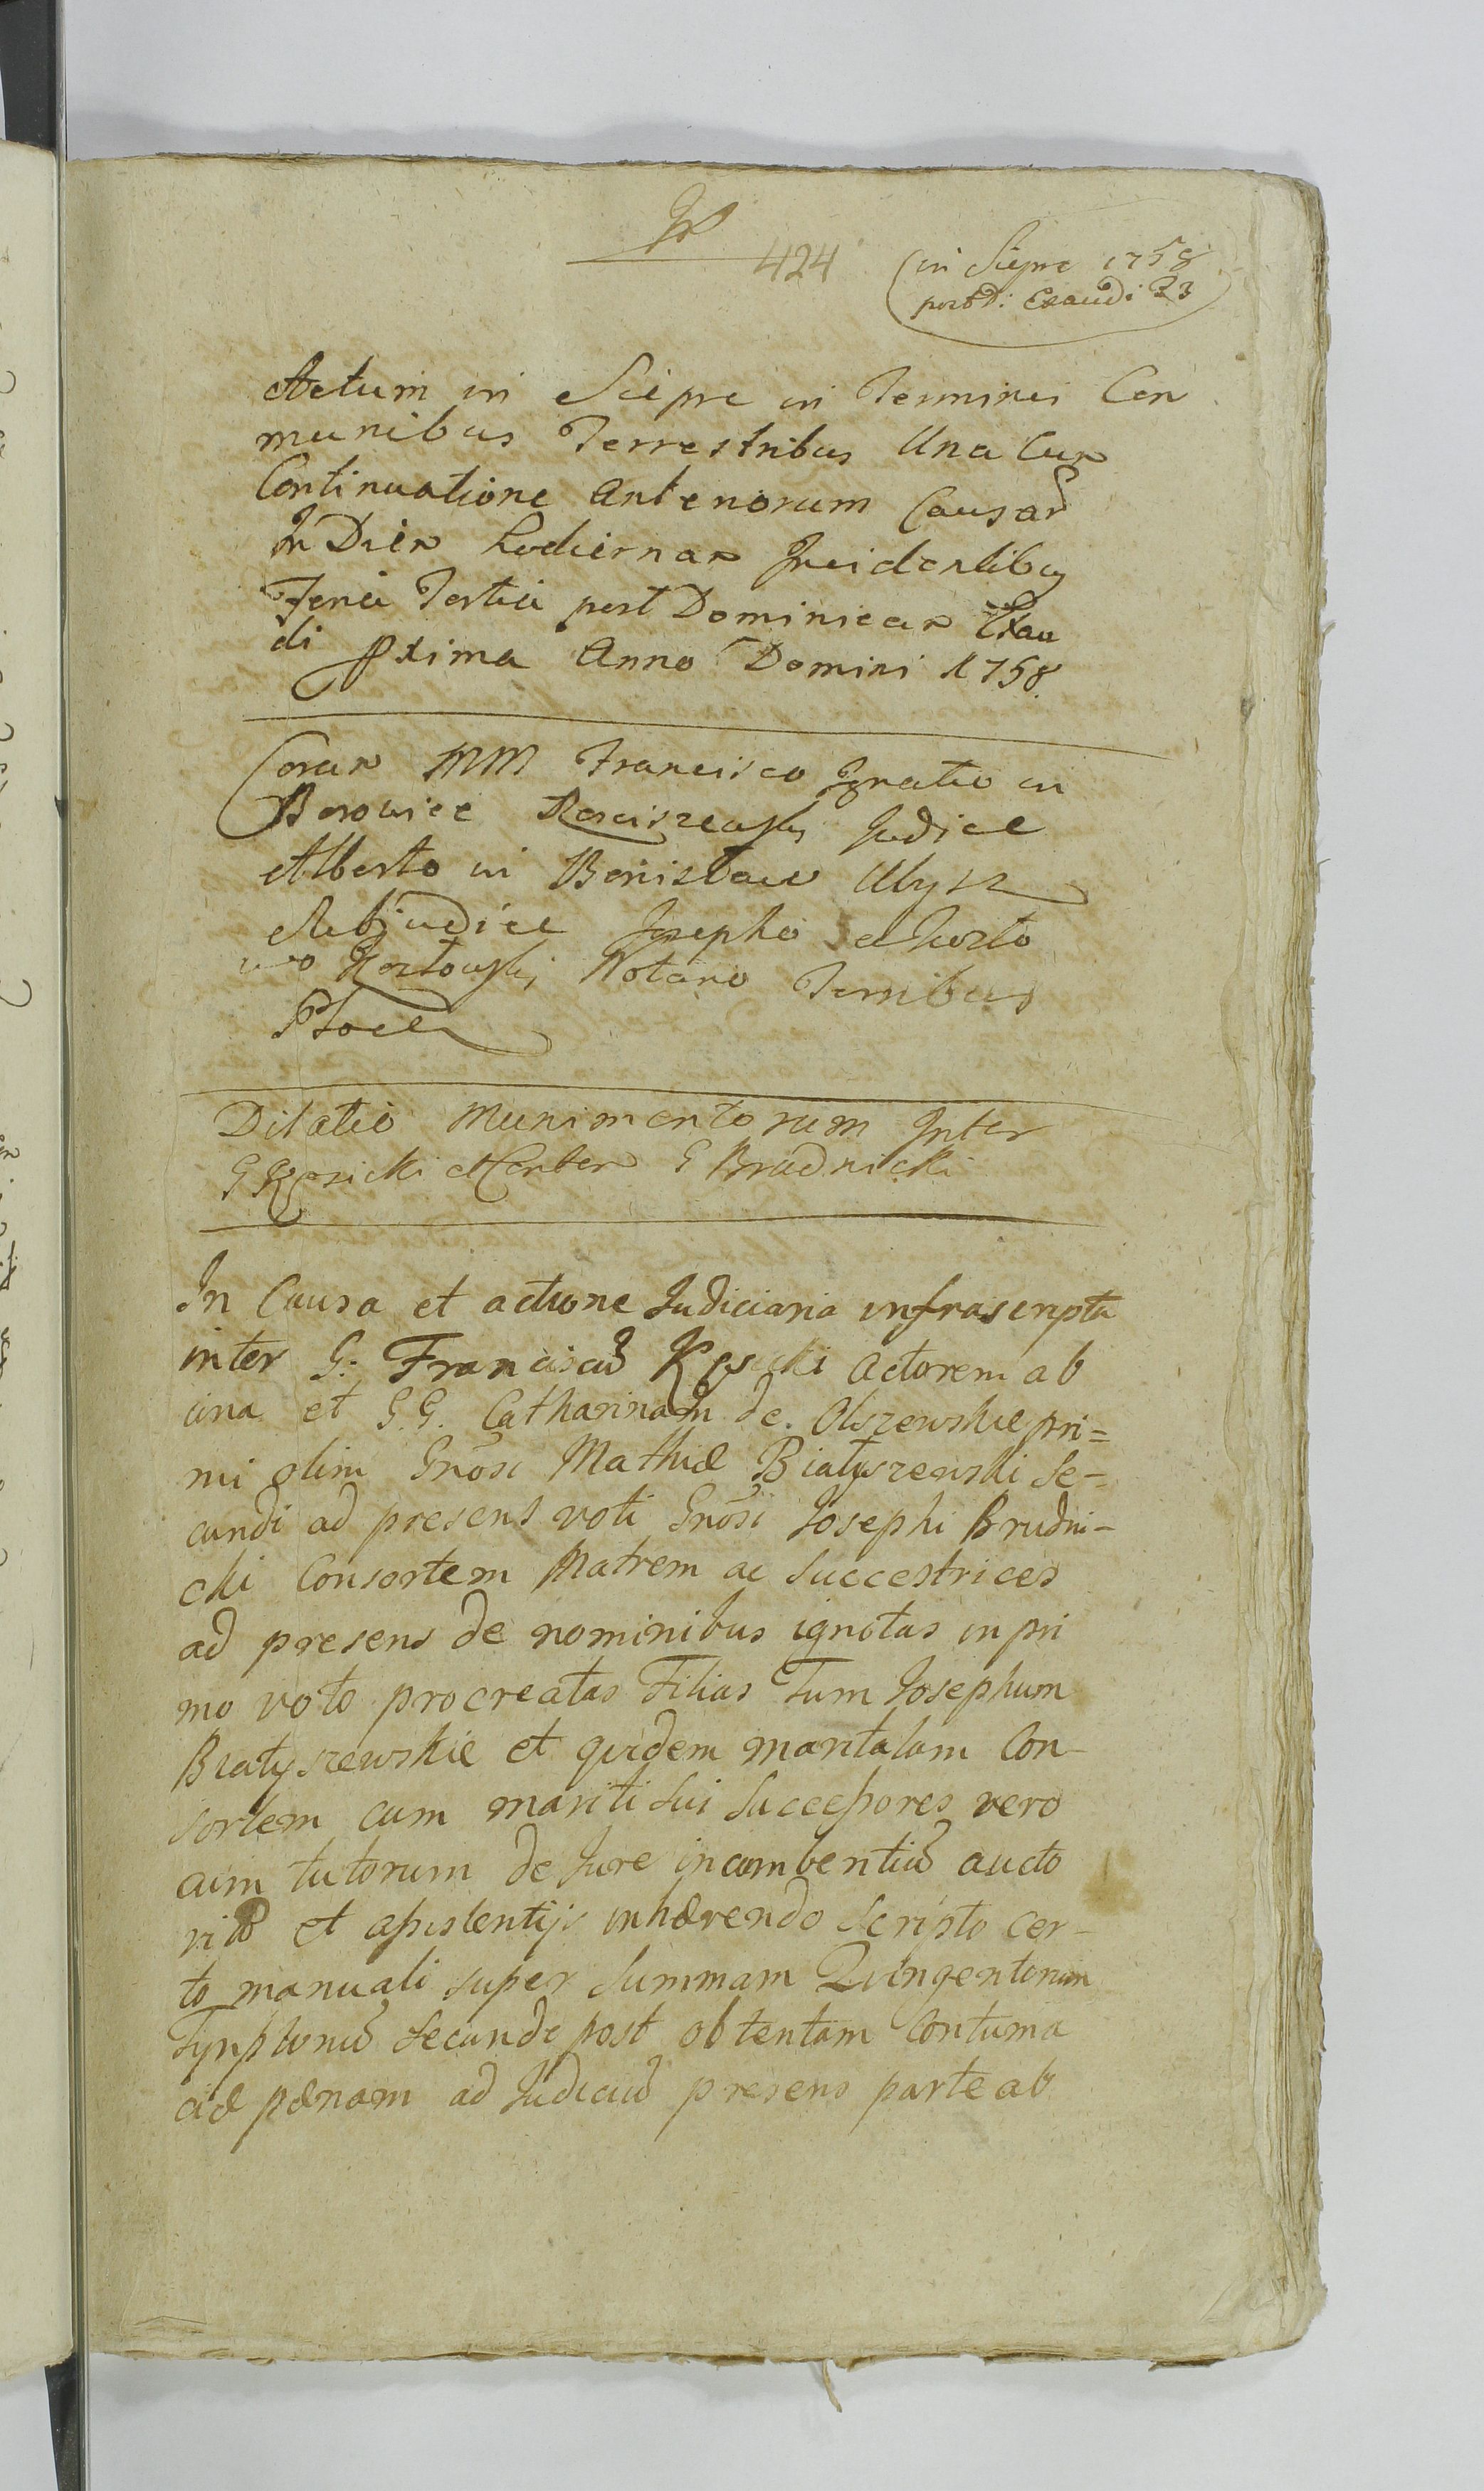 424
(in Siepre 1758
post D: Exaudi 23
Actum in Siepre in Terminis Con
munibus Terrestribus Una Cum
Continuatione Anteriorum Causar
In Diem hodiernam Incidentibus
Feria Tertia post Dominicam Exau
di pxima Anno Domini 1758.
Coram MM Francisco Ignatio in
Borowice Rosciszewski Judice
Alberto in Bonislaw Ubysz
Subjudice Josepho in Kozło
wo Kozłowski Notario Terribus
Plocen
Dilatio Munimentorum Inter
G Kęsicki et Conter G Brudnicki
In Causa et actione Judiciaria infrascripta
inter G: Franciscu Kęsicki Actorem ab
una et G.G. Catharinam de Olszewskie pri=
mi olim Gnosi Mathiæ Białyszewski Se=
cundi ad presens voti Gnosi Josephi Brudni-
cki Consortem Matrem ac Successtrices
ad presens de nominibus ignotas in pri
mo voto procreatas Filias Tum Josephum
Białyszewskie et quidem maritalam Con-
sortem cum mariti sui Successores vero
cum tutorum de Jure incumbentiu aucto
ritb et assistentijs inhærendo Scripto cer-
to manuali super Summam Quingentorum
Tynphonu Secunde post obtentam Contuma
ciæ pænam ad Judiciu presens parte ab